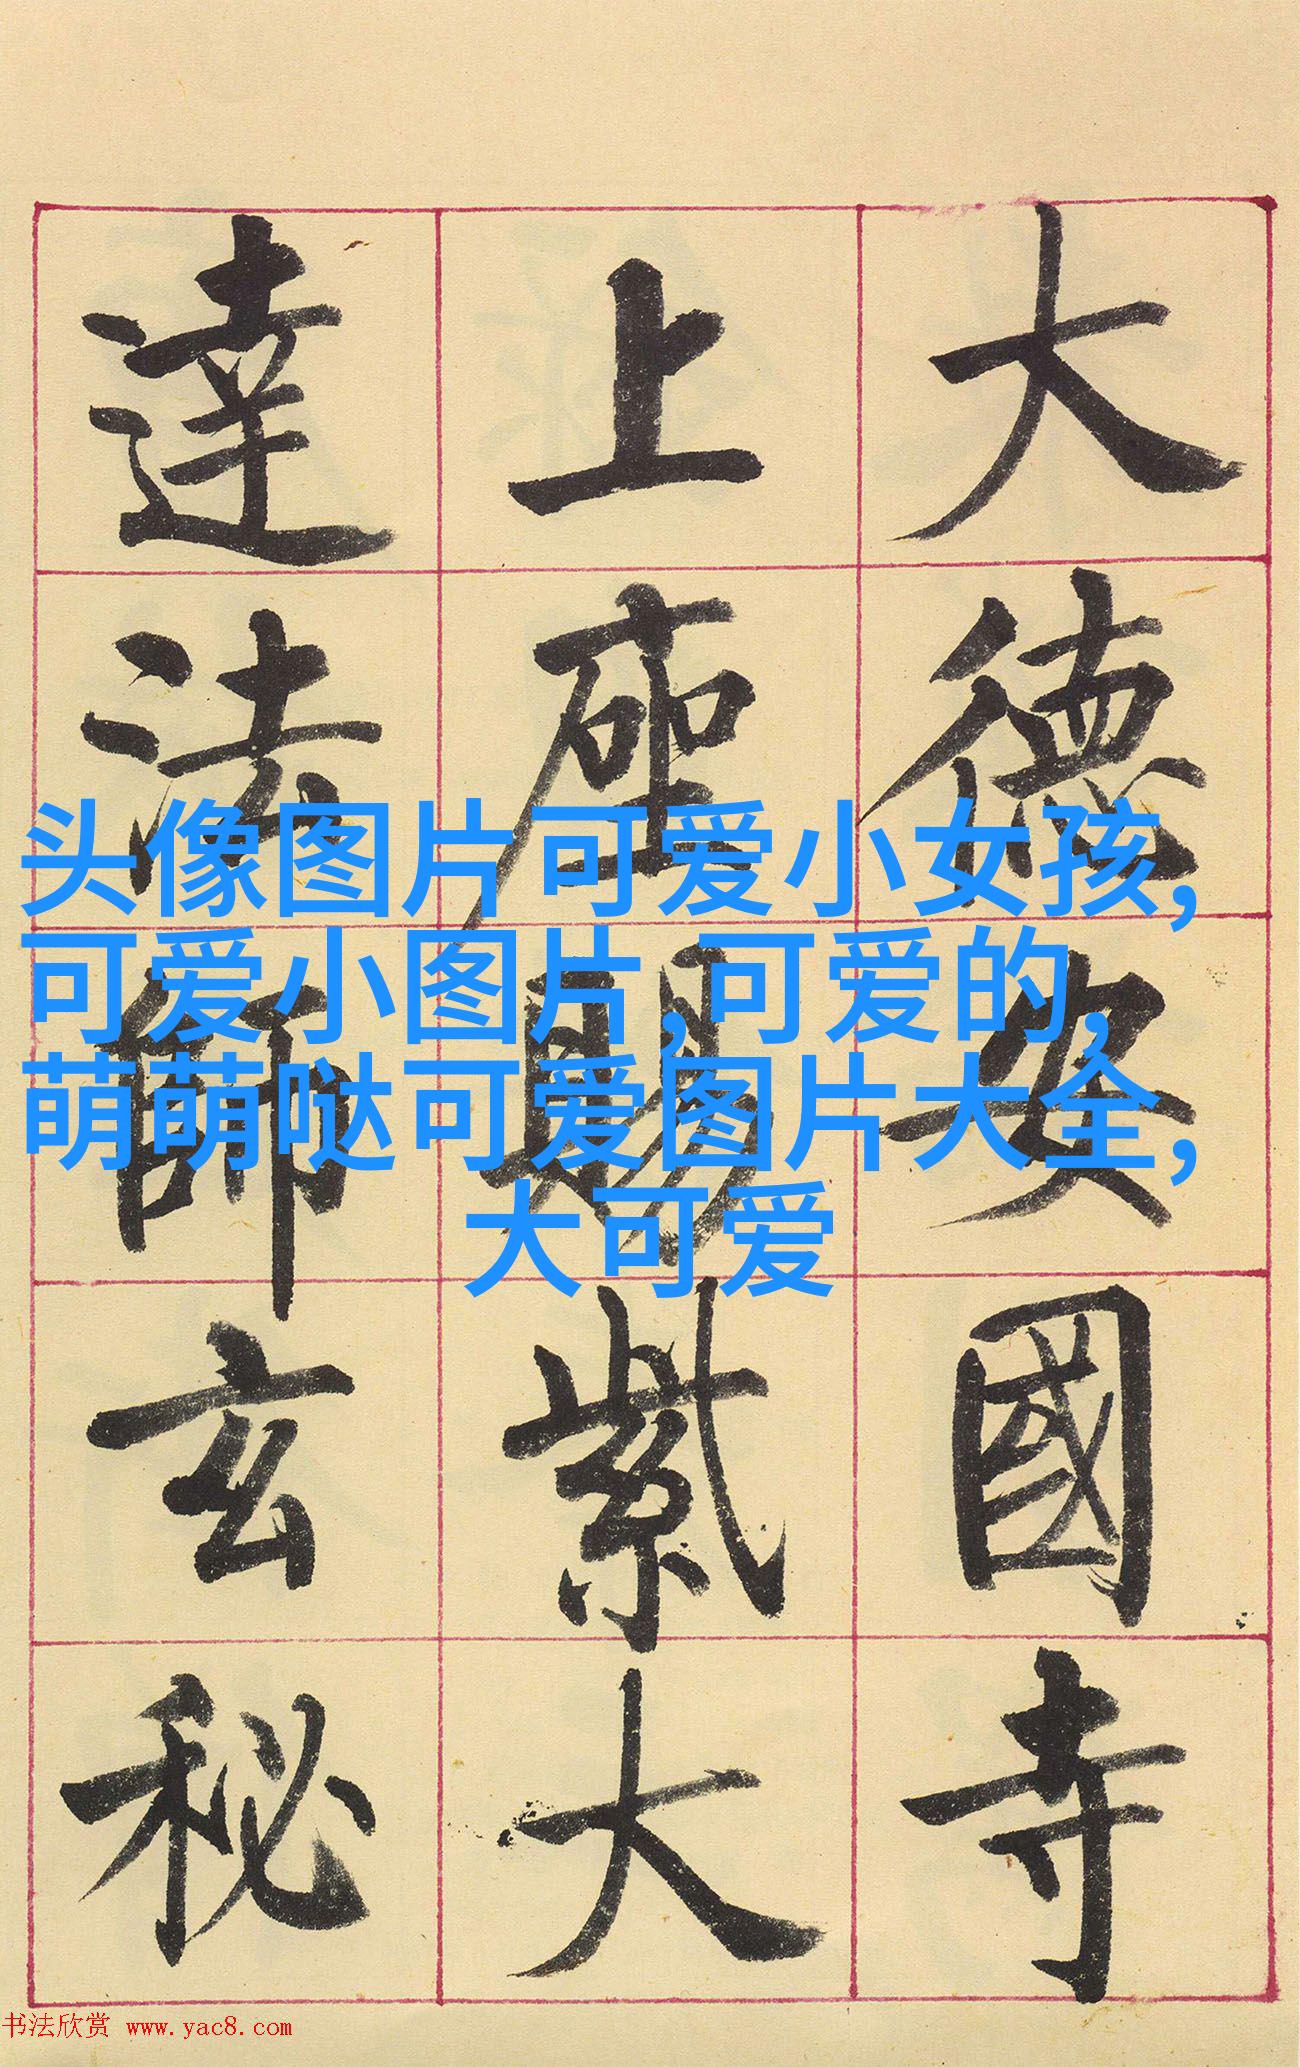 大德安國寺
上座賜紫大
達法師玄秘
头像图片可爱小女孩,
可爱小图片,可爱的,
萌萌哒可爱图片大全,
大可爱
书法欣赏 www.yac8.com